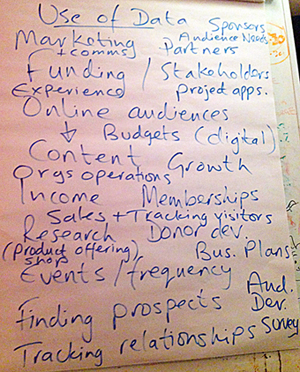 Use of Data Sponsors
Marketing Audience Needs
+ comms Partners
Funding / Stakeholders
Experience Project apps.
Online audiences
↓ Budgets (digital)
Content Growth
Orgs operations
Income Memberships
Sales + Tracking visitors
Research Donor dev.
(Product offering) Bus. Plans
shops
Events / frequency Aud.
Finding prospects Dev.
Tracking relationships Survey